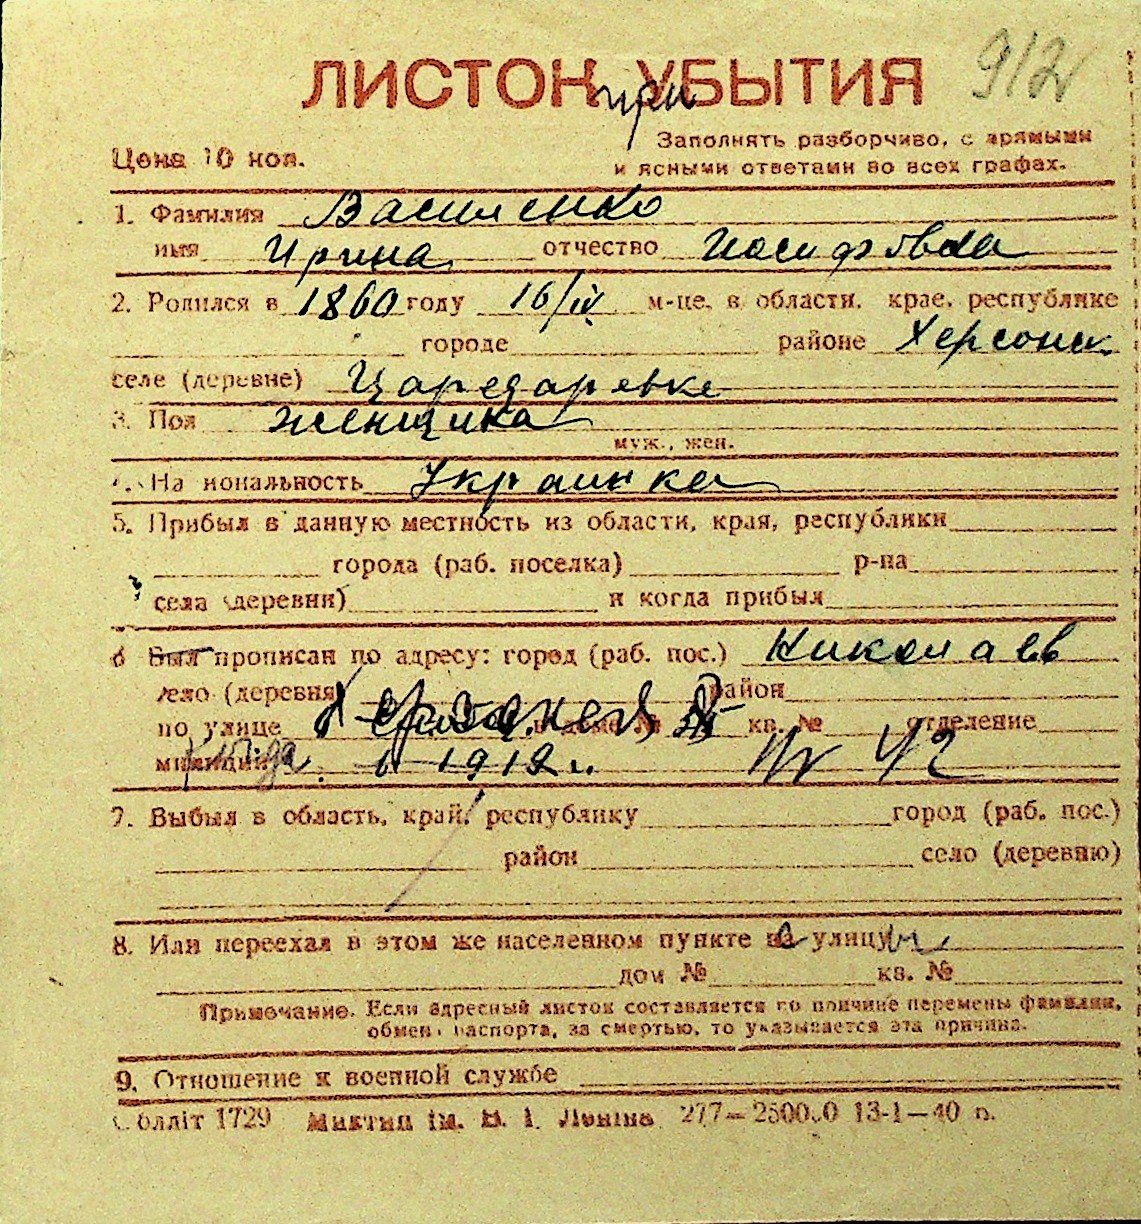 912
ЛИСТОК УБЫТИЯ
при
Цена 10 коп.
Заполнять разборчиво, с прямыми
и ясными ответами во всех графах.
1. Фамилия Василенко
имя Ирина отчество Иосифовна
2. Родился в 1860 году 16/IV м-це, в области, крае, республике
городе районе Херсонск.
селе (деревне) Цареларевке
3. Пол женщина
муж., жен.
4. Национальность Украинка
5. Прибыл в данную местность из области, края, республики
города (раб. поселка) р-на
села (деревни) и когда прибыл
6 Был прописан по адресу: город (раб. пос.) Николаев
село (деревня) район
по улице в доме № кв. № отделение
милиции 1912 г. 42
7. Выбыл в область, край, республику город (раб. пос.)
район село (деревню)
8. Или переехал в этом же населенном пункте на улицу
дом № кв. №
Примечание. Если адресный листок составляется по причине перемены фамилии,
обмена паспорта, за смертью, то указывается эта причина.
9. Отношение к военной службе
Облліт 1729 Миктип ім. В. І. Леніна 277—250000 13-1—40 р.